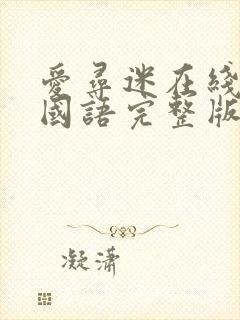 愛尋迷在綫
國語完整版
凝瀟